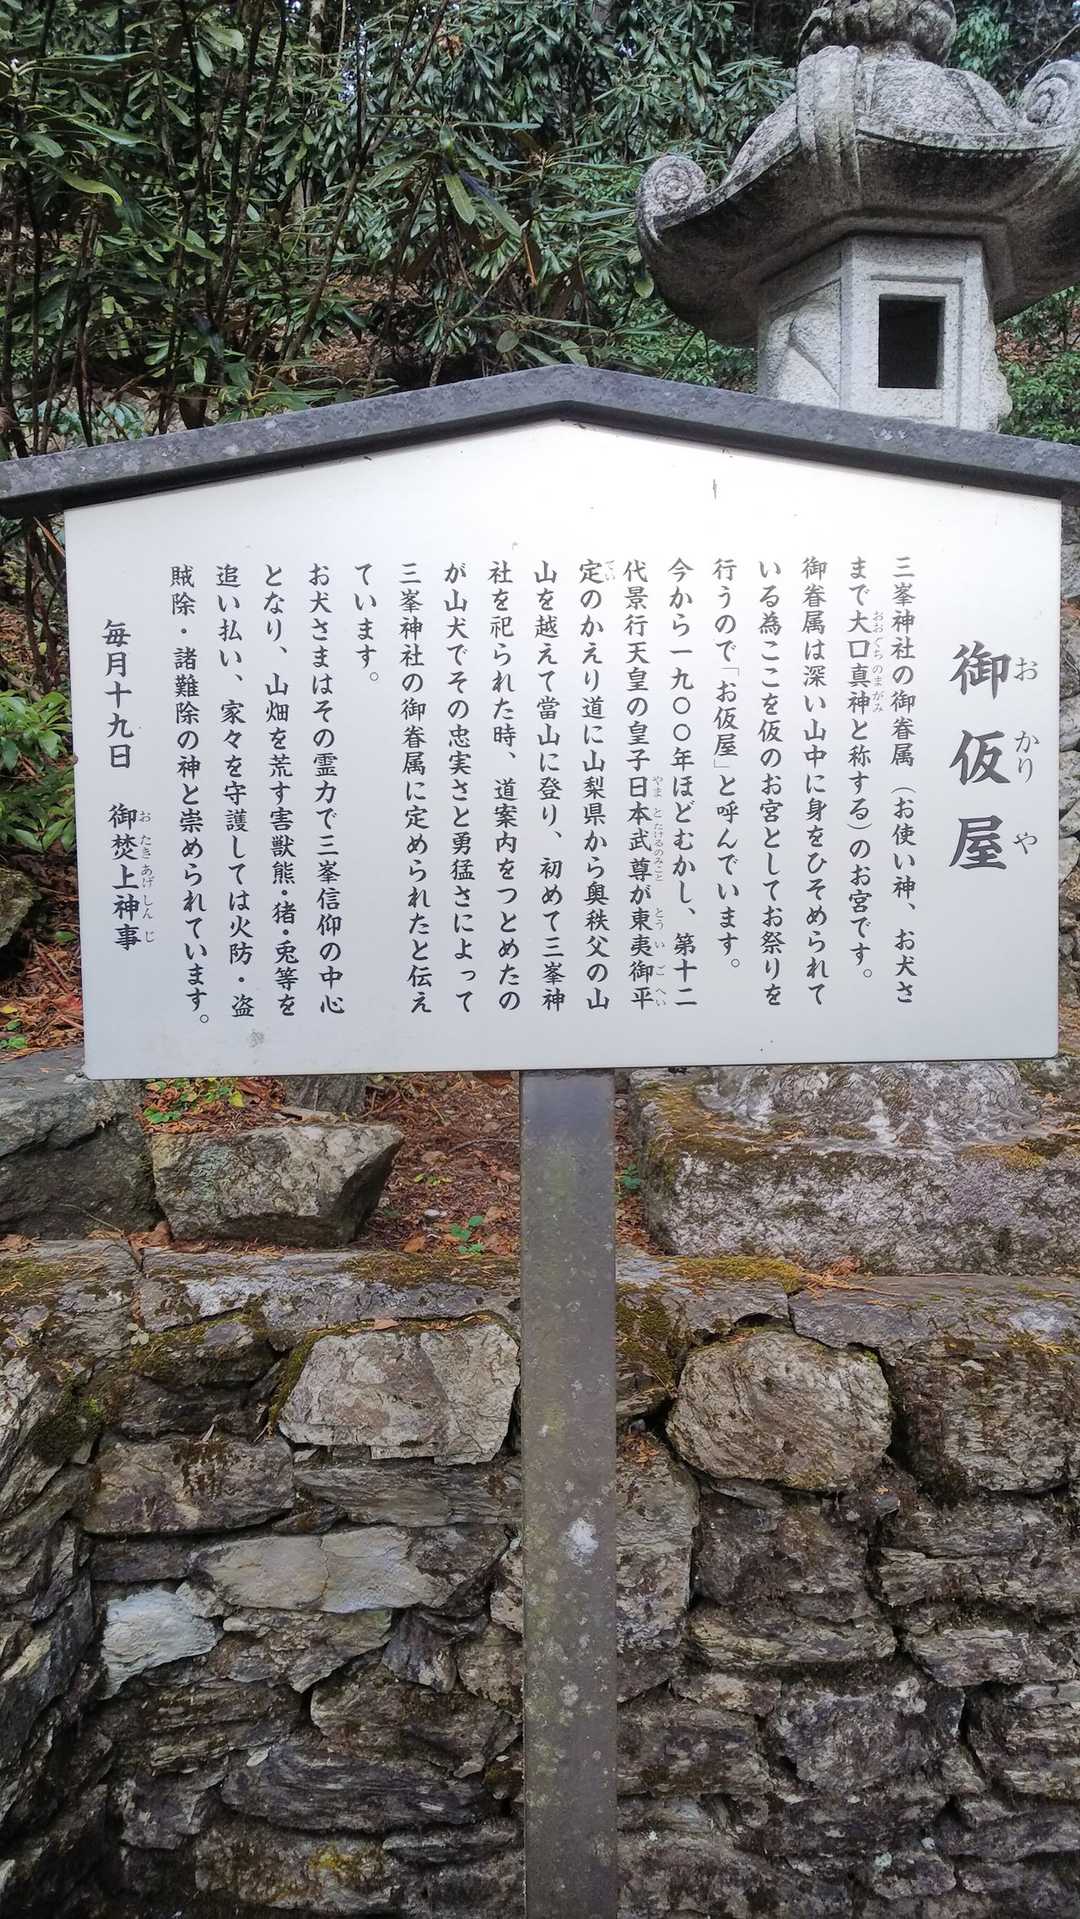 御仮屋
おかりや
三峯神社の御眷属（お使い神、お犬さ
まで大口真神と称する）のお宮です。
おおぐちのまがみ
御眷属は深い山中に身をひそめられて
いる為ここを仮のお宮としてお祭りを
行うので「お仮屋」と呼んでいます。
今から一九〇〇年ほどむかし、第十二
代景行天皇の皇子日本武尊が東夷御平
やまとたけるのみこと とういごへい
定のかえり道に山梨県から奥秩父の山
てい
山を越えて當山に登り、初めて三峯神
社を祀られた時、道案内をつとめたの
が山犬でその忠実さと勇猛さによって
三峯神社の御眷属に定められたと伝え
ています。
お犬さまはその霊力で三峯信仰の中心
となり、山畑を荒す害獣熊・猪・兎等を
追い払い、家々を守護しては火防・盗
賊除・諸難除の神と崇められています。
毎月十九日 御焚上神事
おたきあげしんじ